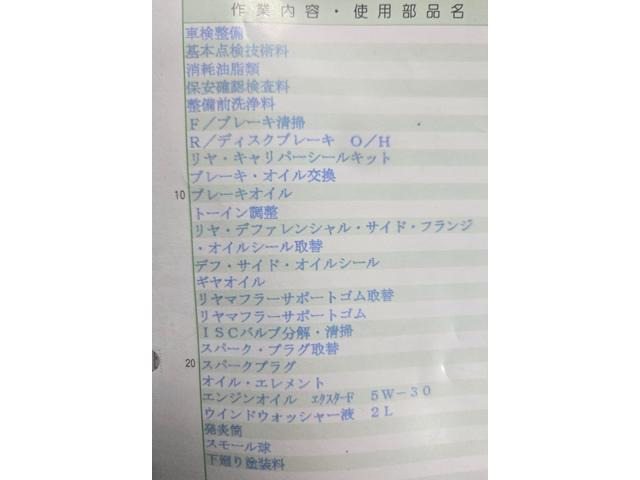 作業内容・使用部品名
車検整備
基本点検技術料
消耗油脂類
保安確認検査料
整備前洗浄料
F/ブレーキ清掃
R/ディスクブレーキ O/H
リヤ・キャリパーシールキット
ブレーキ・オイル交換
10 ブレーキオイル
トーイン調整
リヤ・デファレンシャル・サイド・フランジ
・オイルシール取替
デフ・サイド・オイルシール
ギヤオイル
リヤマフラーサポートゴム取替
リヤマフラーサポートゴム
ISCバルブ分解・清掃
スパーク・プラグ取替
20 スパークプラグ
オイル・エレメント
エンジンオイル エクスターF 5W-30
ウインドウォッシャー液 2L
発炎筒
スモール球
下廻り塗装料